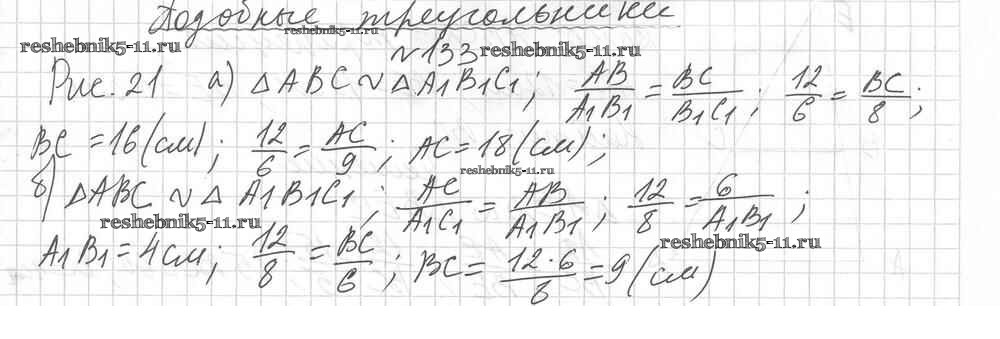 Подобные треугольники.
reshebnik5-11.ru
reshebnik5-11.ru
№133 reshebnik5-11.ru
Рис. 21 а) △ABC ∾ △A₁B₁C₁; AB/A₁B₁ = BC/B₁C₁; 12/6 = BC/8;
BC = 16 (см); 12/6 = AC/9; AC = 18 (см);
reshebnik5-11.ru
б) △ABC ∾ △A₁B₁C₁; AC/A₁C₁ = AB/A₁B₁; 12/8 = 6/A₁B₁;
reshebnik5-11.ru
reshebnik5-11.ru
A₁B₁ = 4 см; 12/8 = BC/6; BC = 12·6/8 = 9 (см)